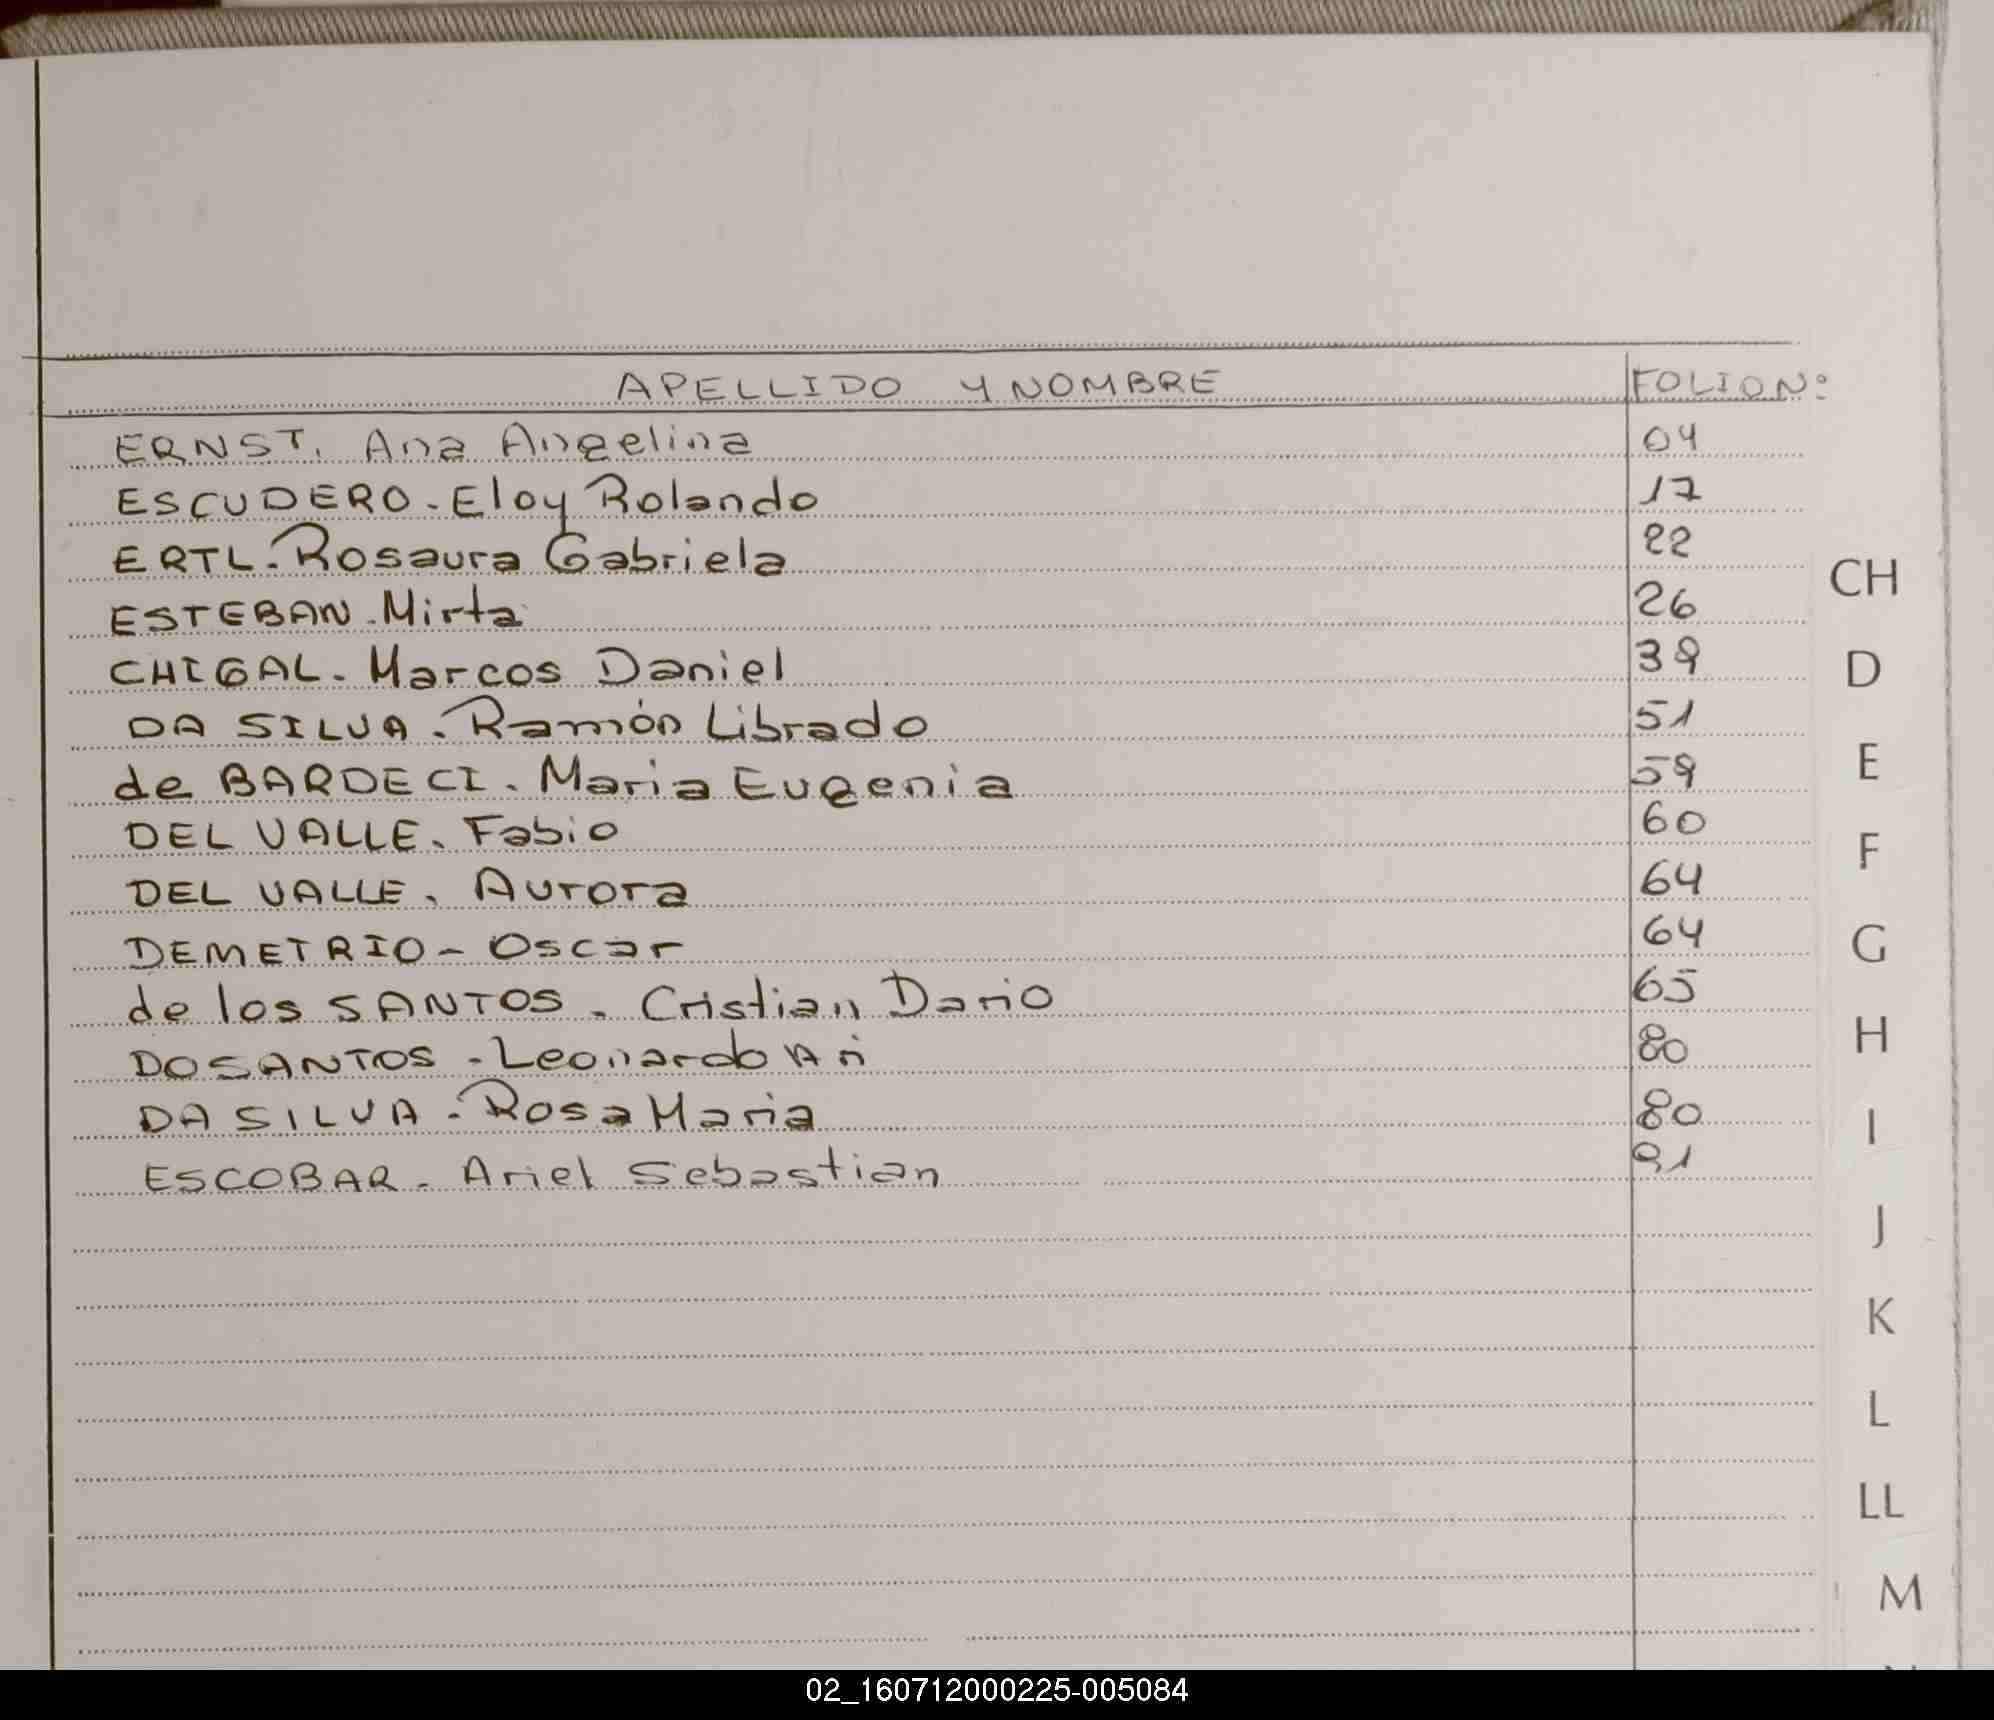 APELLIDO Y NOMBRE FOLIO Nº
ERNST. Ana Angelina 04
ESCUDERO - Eloy Rolando 17
ERTL. Rosaura Gabriela 22
ESTEBAN. Mirta 26
CHIGAL. Marcos Daniel 39
DA SILVA. Ramón Librado 51
de BARDECI. Maria Eugenia 59
DEL VALLE. Fabio 60
DEL VALLE. Aurora 64
DEMETRIO - Oscar 64
de los SANTOS. Cristian Dario 65
DOSANTOS - Leonardo Ari 80
DA SILVA. Rosa Maria 80
ESCOBAR. Ariel Sebastian 91
CH
D
E
F
G
H
I
J
K
L
LL
M
02_160712000225-005084